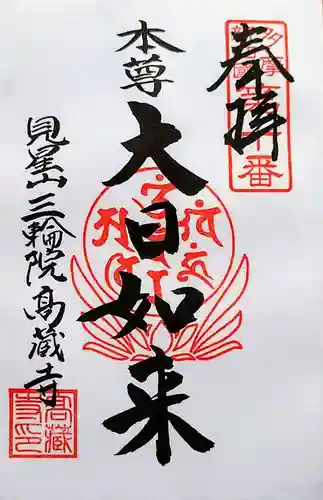 奉拝
本尊
大日如来
見星山三輪院高蔵寺
高蔵
寺印